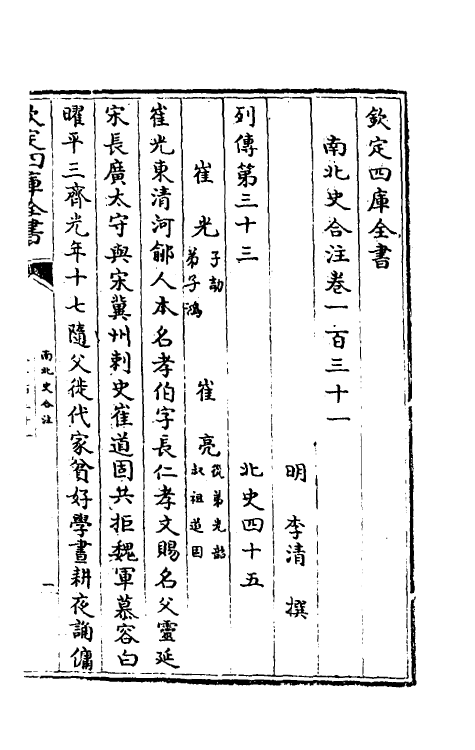 欽定四庫全書
南北史合注卷一百三十一
明 李清 撰
列傳第三十三 北史四十五
崔光 子劼 弟子鴻 崔亮 從弟光韶 叔祖道固
崔光東清河鄃人本名孝伯字長仁孝文賜名父靈延
宋長廣太守與宋冀州刺史崔道固共拒魏軍慕容白
曜平三齊光年十七隨父徙代家貧好學晝耕夜誦傭
欽定四庫全書
南北史合注
一